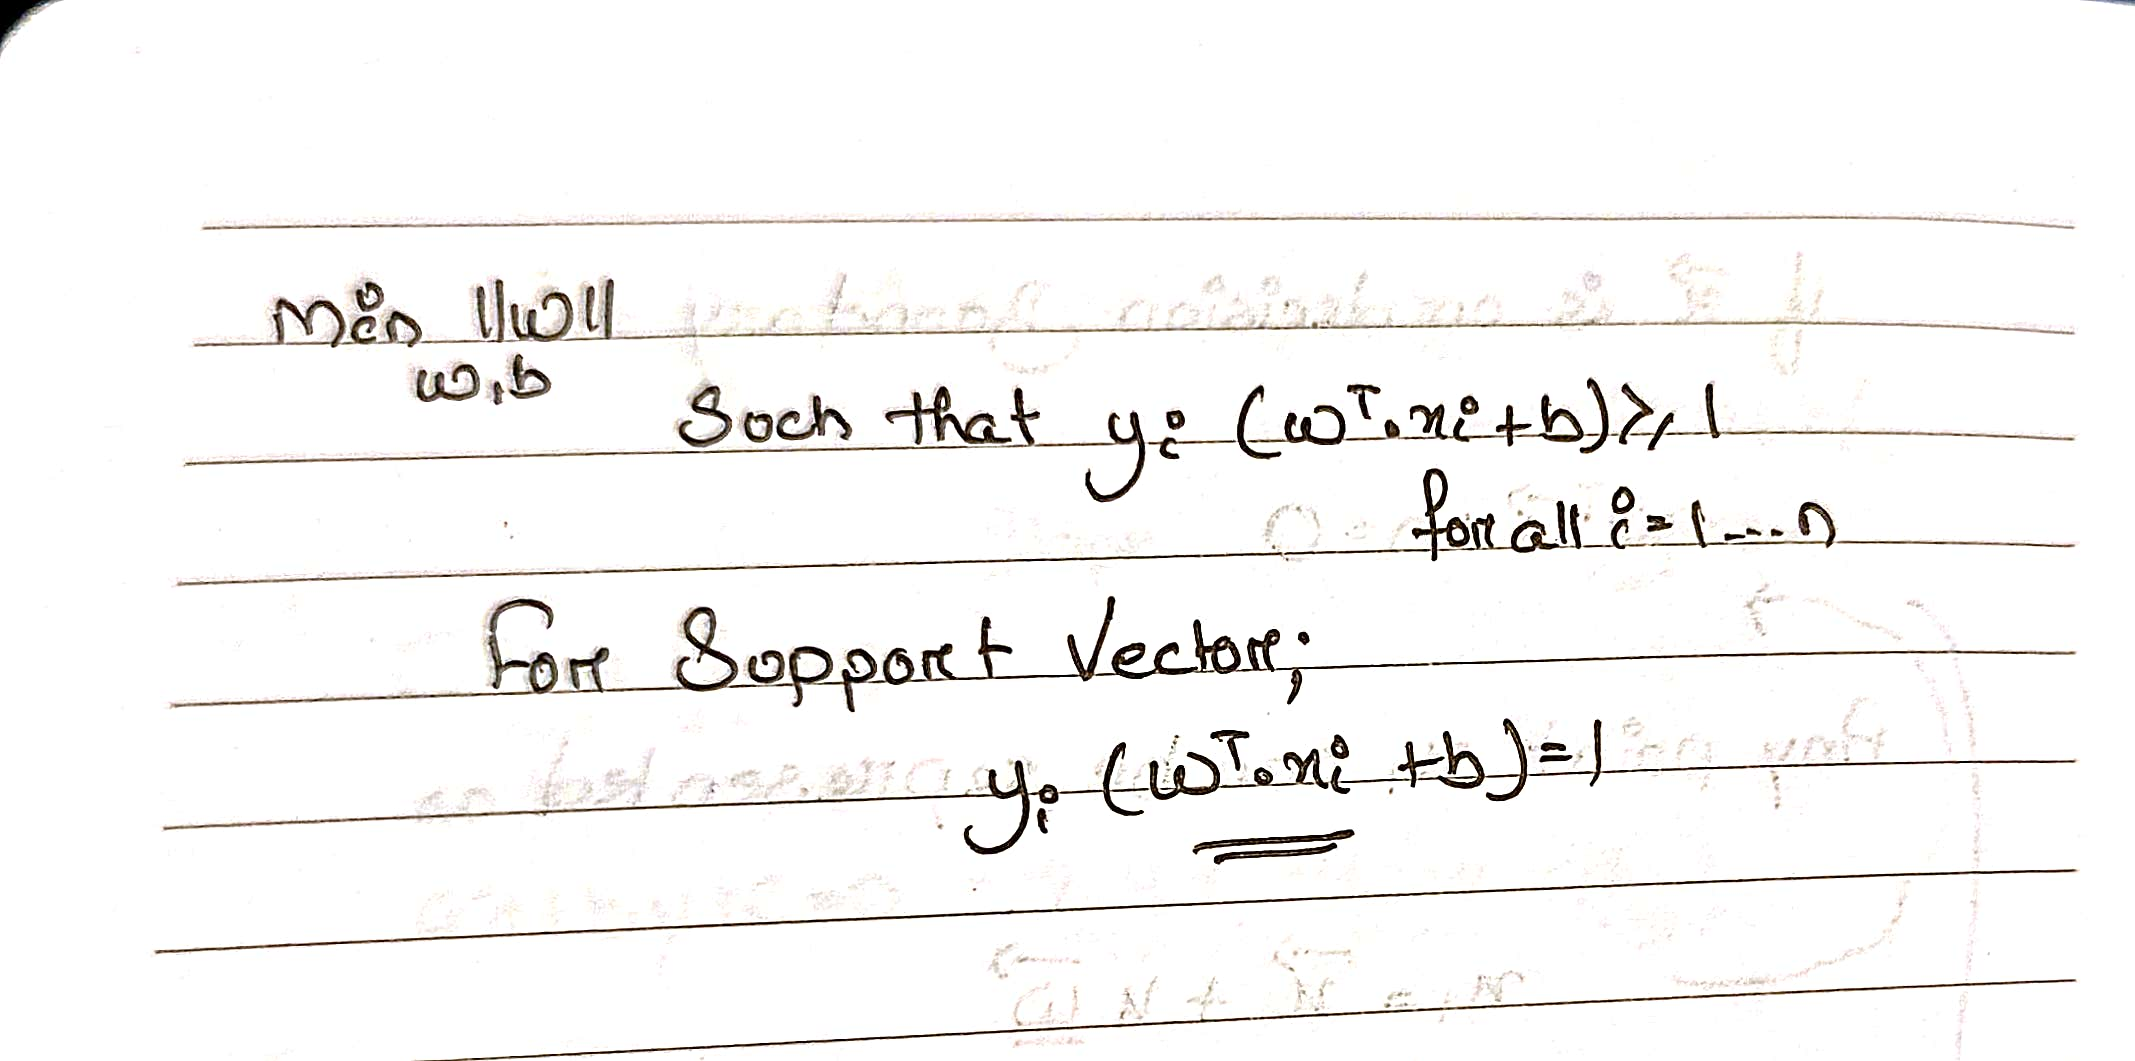 Min ||w||
w,b
Such that yi (wᵀ.xi+b)≥1
for all i=1---n
For Support Vector;
yi (wᵀ.xi +b)=1